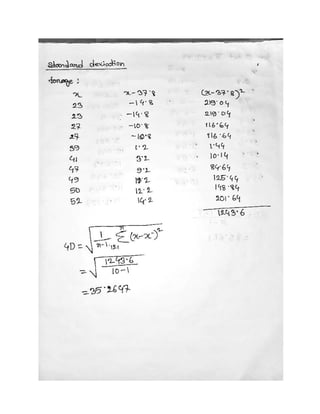 Standard deviation
tonage :
x x-37.8 (x-37.8)²
23 -14.8 219.04
23 -14.8 219.04
27 -10.8 116.64
27 -10.8 116.64
39 1.2 1.44
41 3.2 10.14
47 9.2 84.64
49 11.2 125.44
50 12.2 148.84
52 14.2 201.64
1243.6
SD = √ 1/n-1 Σ (x-x̄)²
n
i=1
= √ 1243.6/10-1
= 35.2647